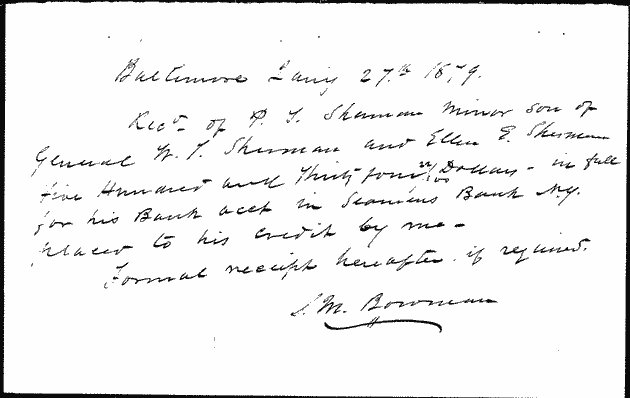 Baltimore Jany 27th 1879.
Recd of P. T. Sherman Minor son of
General W. T. Sherman and Ellen E. Sherman
five Hundred and Thirty four Dollars - in full
for his Bank acct in Seamens Bank N.Y.
placed to his credit by me -
Formal receipt hereafter if required.
S. M. Bowman